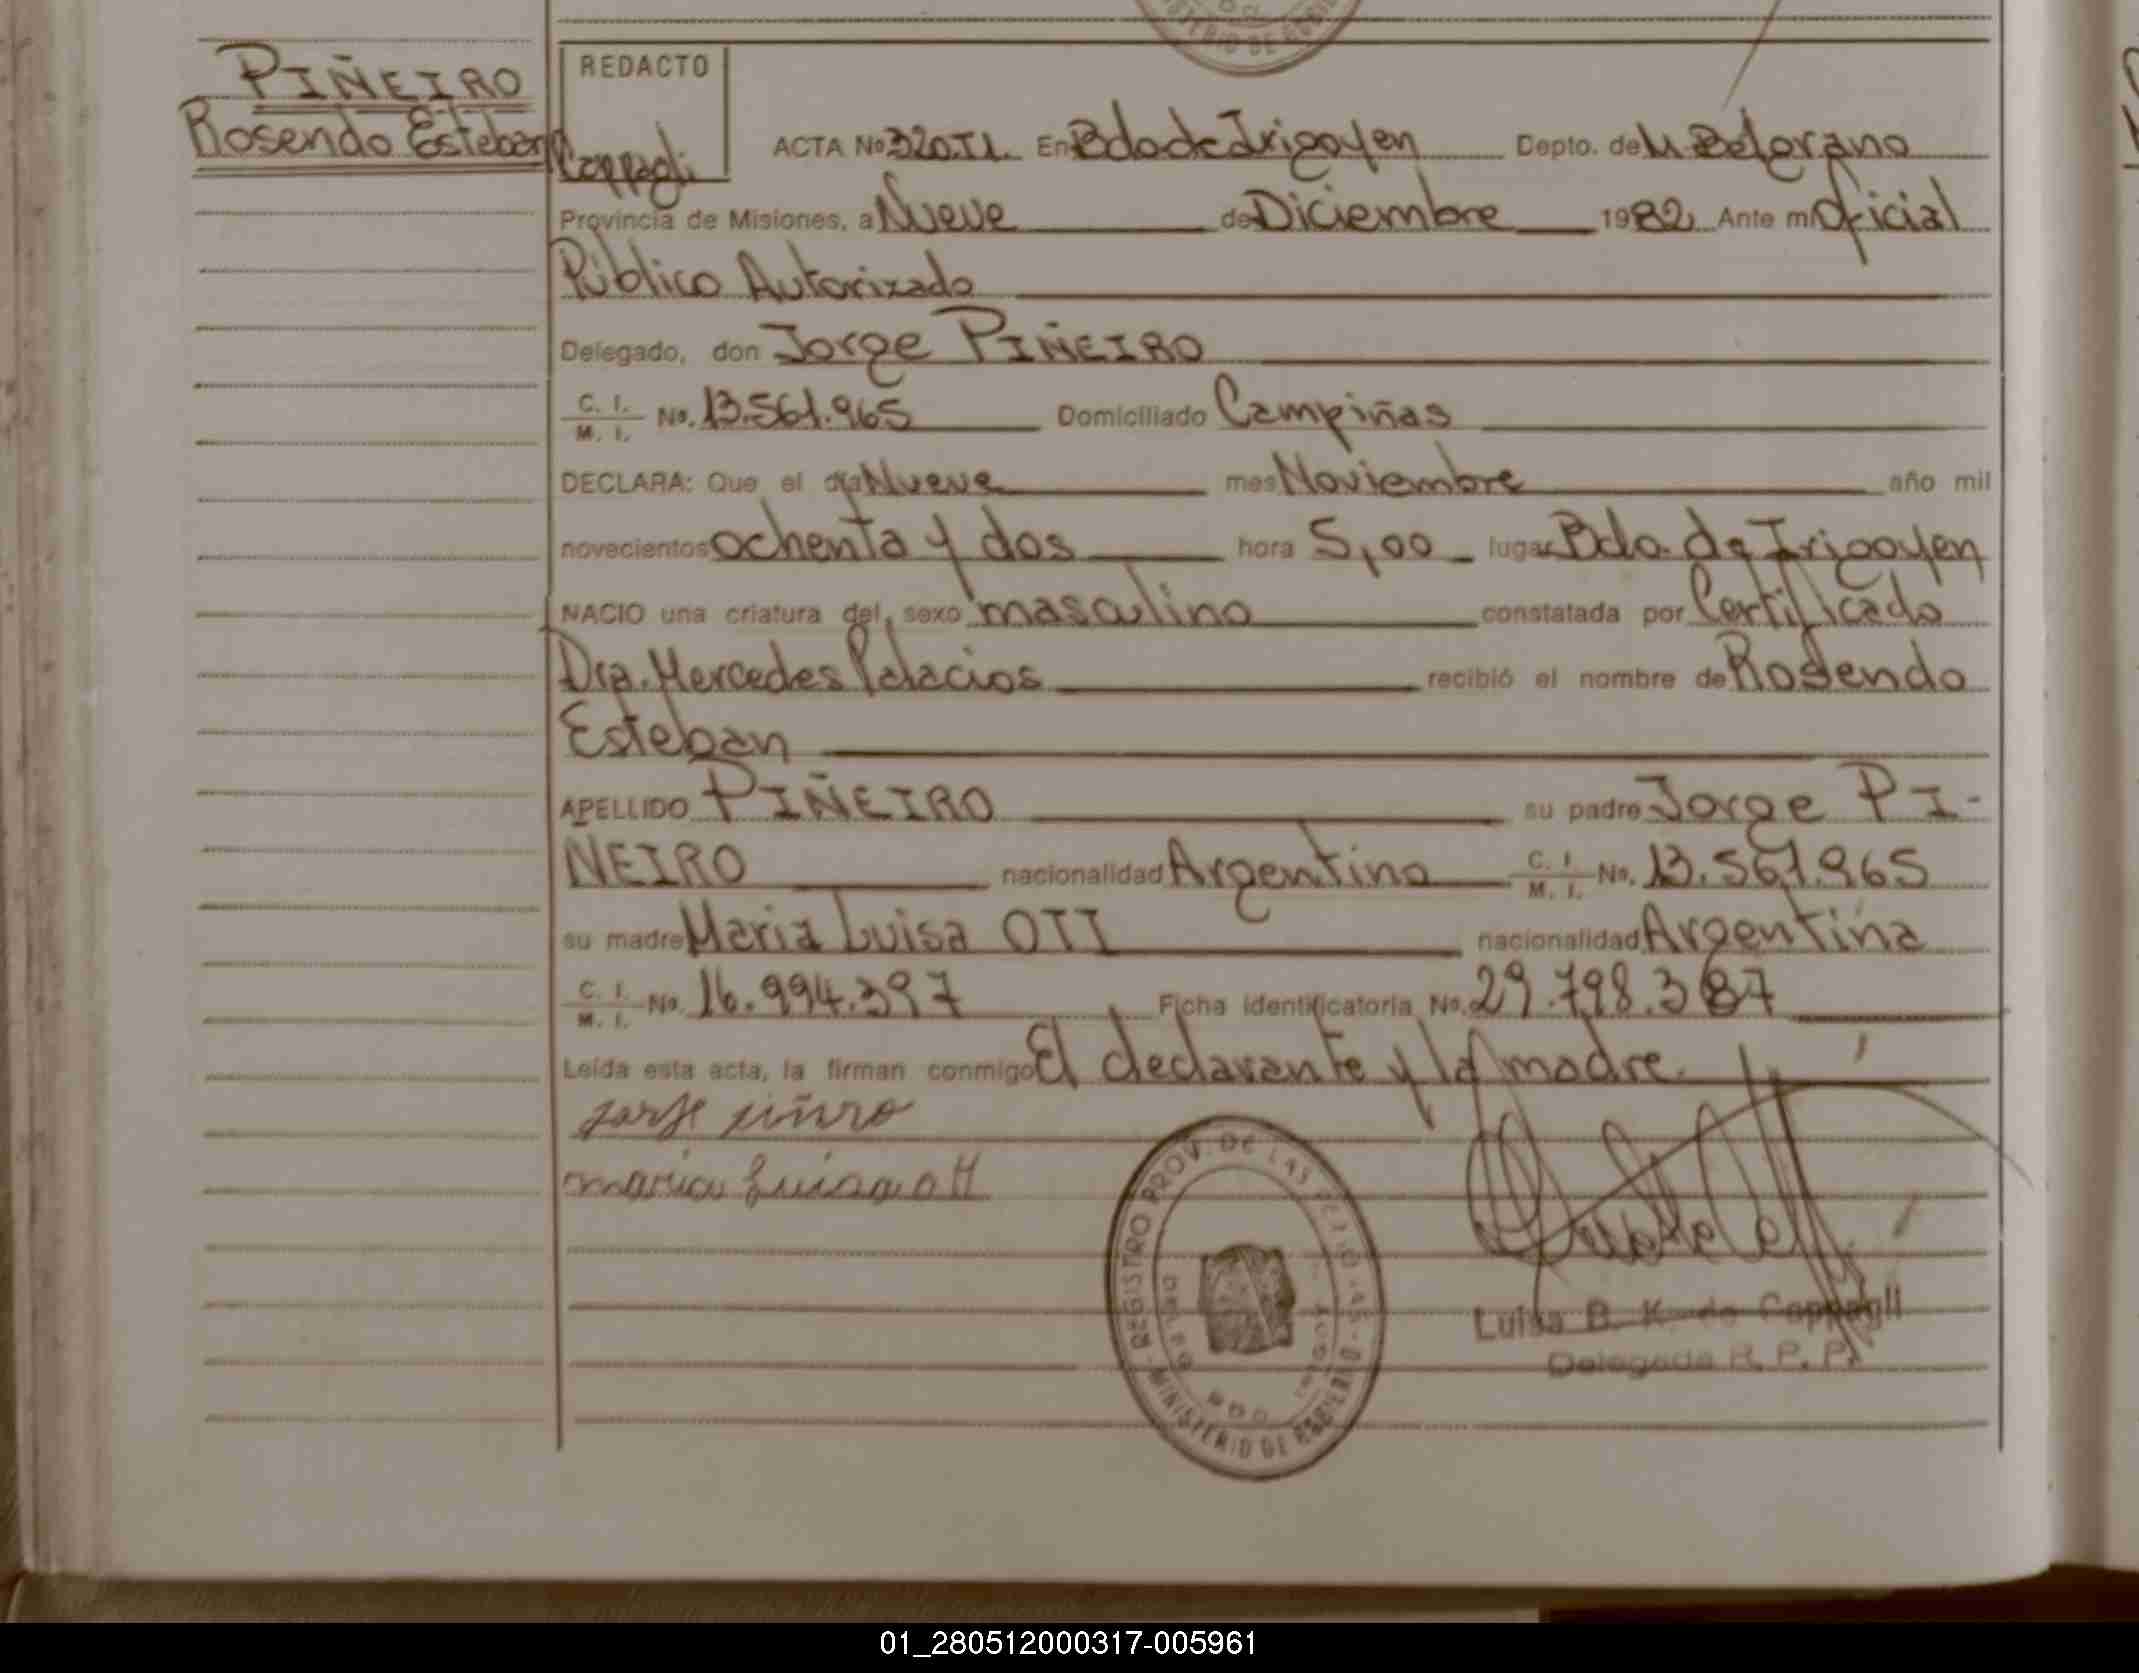 PIÑEIRO
Rosendo Esteban
REDACTO
Cappagli
ACTA No 320.TI. En Bdo de Irigoyen Depto. de M Belgrano
Provincia de Misiones, a Nueve de Diciembre 1982 Ante mi Oficial
Público Autorizado
Delegado, don Jorge PIÑEIRO
C. I. M. I. No. 13.561.965 Domiciliado Campiñas
DECLARA: Que el día Nueve mes Noviembre año mil
novecientos ochenta y dos hora 5,00 lugar Bdo. de Irigoyen
NACIO una criatura del sexo masculino constatada por Certificado
Dra. Mercedes Palacios recibió el nombre de Rosendo
Esteban
APELLIDO PIÑEIRO su padre Jorge PI-
ÑEIRO nacionalidad Argentino C. I. M. I. No. 13.561.965
su madre Maria Luisa OTT nacionalidad Argentina
C. I. M. I. No. 16.994.397 Ficha identificatoria No. 29.798.387
Leída esta acta, la firman conmigo El declarante y la madre.
maria Luisa ott
REGISTRO PROV. DE LAS PERSONAS
MINISTERIO DE GOBIERNO
Luisa B. K. de Cappagli
Delegada R. P. P.
01_280512000317-005961